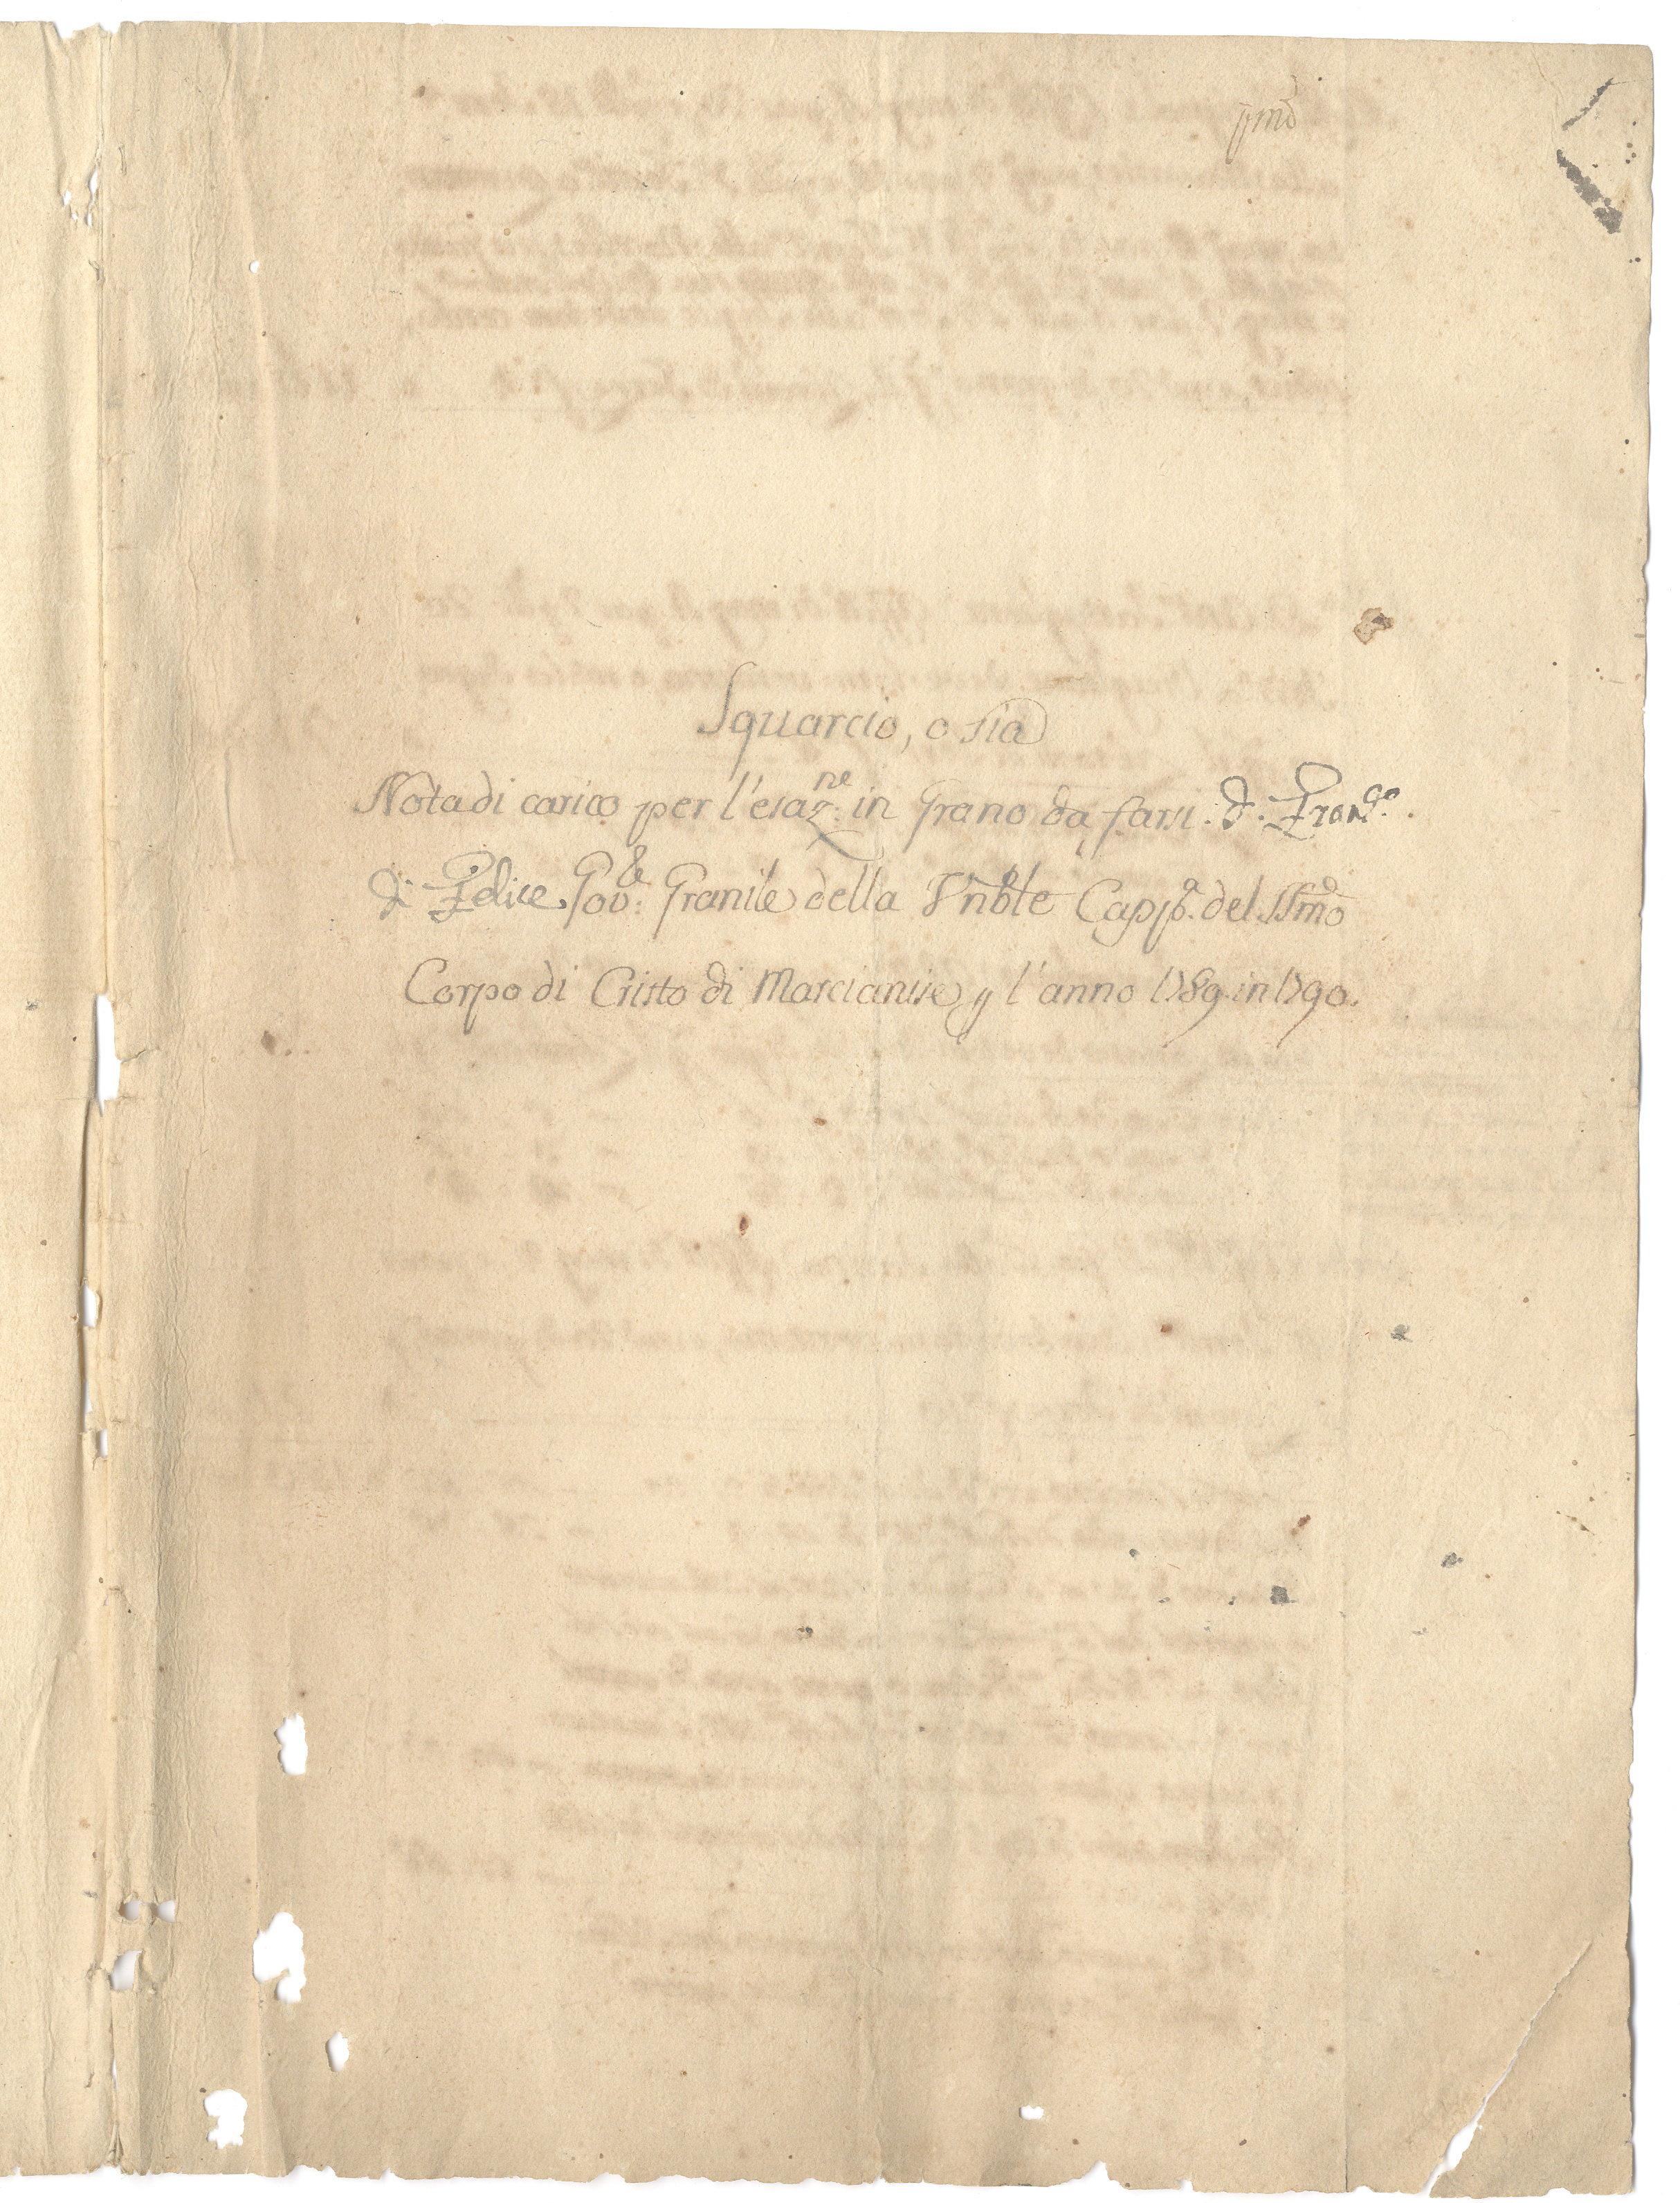 jjmo
Squarcio, o sia
Nota di carico per l'esaz:ne in Grano da farsi. D. Franc:co.
di Felice Gov:le Granile della Vnble Capp:a del SSmo
Corpo di Cristo di Marcianise p l'anno 1789. in 1790.